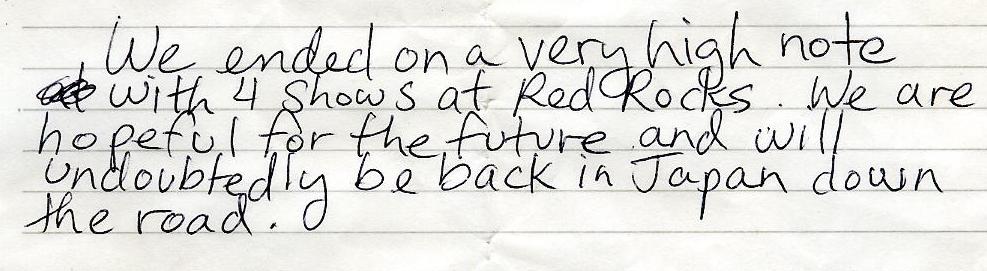 We ended on a very high note
with 4 shows at Red Rocks. We are
hopeful for the future and will
undoubtedly be back in Japan down
the road.